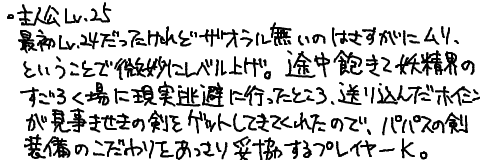 ・主人公Lv.25
最初Lv.24だったけれどザオラル無いのはさすがにムリ、
ということで微妙にレベル上げ。途中飽きて妖精界の
すごろく場に現実逃避に行ったところ、送り込んだホイミン
が見事きせきの剣をゲットしてきてくれたので、パパスの剣
装備のこだわりをあっさり妥協するプレイヤーK。